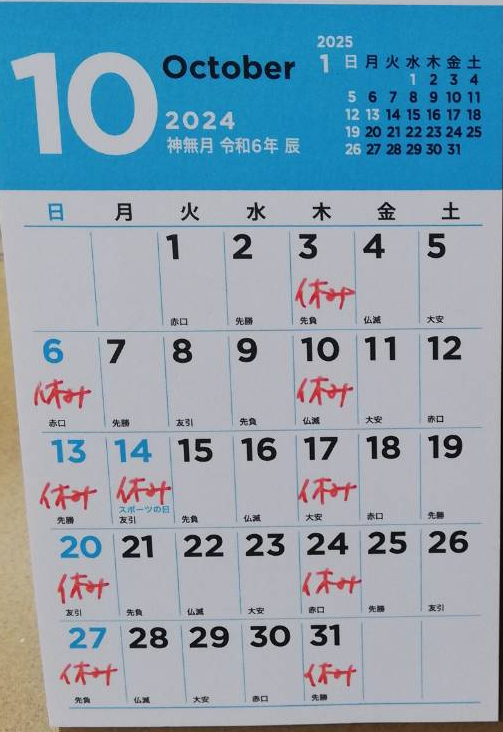 2025
10 October 1 日 月 火 水 木 金 土
1 2 3 4
5 6 7 8 9 10 11
2024 12 13 14 15 16 17 18
神無月 令和6年 辰 19 20 21 22 23 24 25
26 27 28 29 30 31
日 月 火 水 木 金 土
1 2 3 4 5
休み
赤口 先勝 先負 仏滅 大安
6 7 8 9 10 11 12
休み 休み
赤口 先勝 友引 先負 仏滅 大安 赤口
13 14 15 16 17 18 19
休み 休み 休み
スポーツの日
先勝 友引 先負 仏滅 大安 赤口 先勝
20 21 22 23 24 25 26
休み 休み
友引 先負 仏滅 大安 赤口 先勝 友引
27 28 29 30 31
休み 休み
先負 仏滅 大安 赤口 先勝